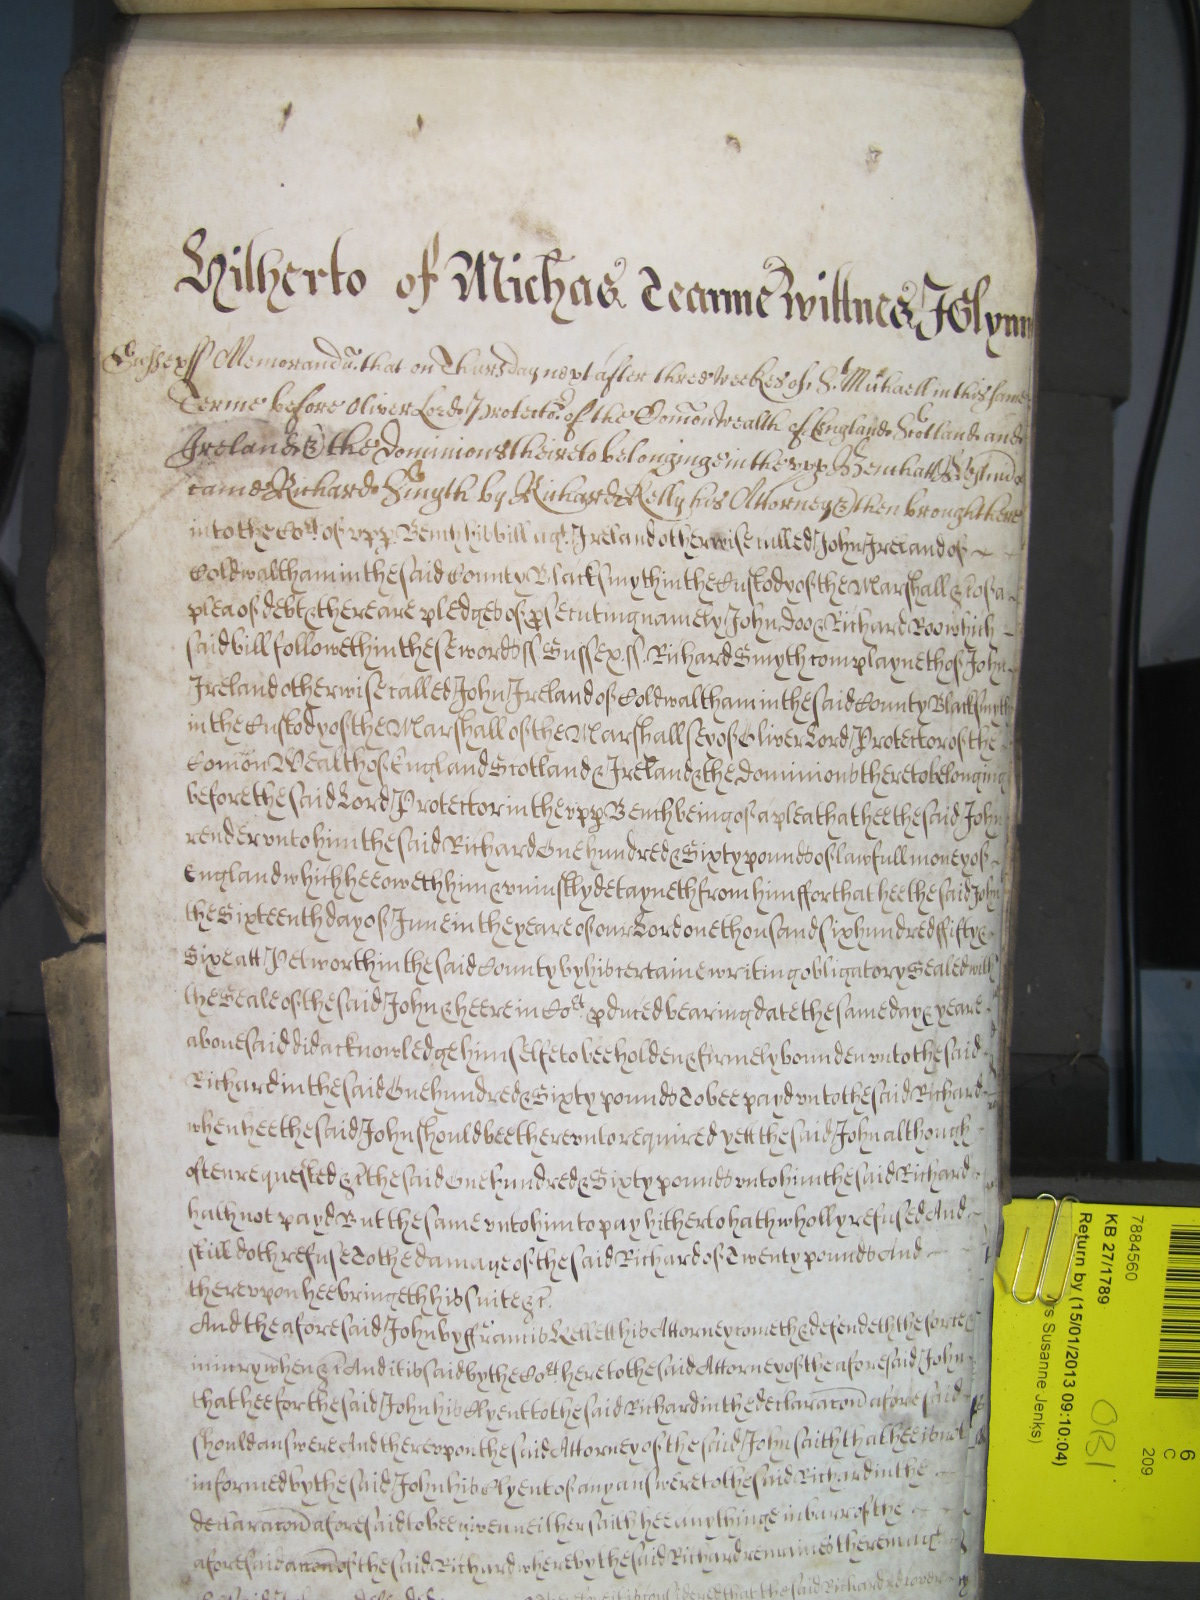 Hitherto of Michas Tearme wittnes JGlynn
Sussex ss Memorandu. that on Thursday next after three weekes of St. Michaell in this same
Terme before Oliver Lord Protector of the Comon wealth of England Scotland and
Ireland & the Dominions thereto belonginge in the upp Bench att Westm
came Richard Smyth by Richard Kelly his Attorney & then brought here
into the Cort of upp. Bench his bill agt. Ireland otherwise called John Ireland of
Coldwaltham in the said County Blacksmyth in the Custody of the Marshall &c of a
plea of debt & there are pledges of psecuting namely John Doo & Richard Roo which
said bill followeth in these words ss Sussex. ss. Richard Smyth complayneth of John
Ireland otherwise called John Ireland of Coldwaltham in the said County Blacksmyth
in the Custody of the Marshall of the Marshallsey of Oliver Lord Protector of the
Comon Wealth of England Scotland & Ireland & the Dominions thereto belonging
before the said Lord Protector in the upp Bench being of a plea that hee the said John
render unto him the said Richard One hundred & Sixty pounds of lawfull money of
England which hee oweth him & uniustly detayneth from him ffor that hee the said John
the Sixteenth day of June in the yeare of our Lord one thousand six hundred ffifty &
Sixe att Petworth in the said County by his certaine writing obligatory Sealed with
the Seale of the said John & heere in Cort pduced bearing date the same day & yeare
abovesaid did acknowledge himselfe to bee holden & firmely bounden unto the said
Richard in the said One hundred & Sixty pounds To bee payd unto the said Richard
when hee the said John should bee thereunto required yett the said John although
often requested &c the said One hundred & Sixty pounds unto him the said Richard
hath not payd But the same unto him to pay hitherto hath wholly refused And
still doth refuse To the damage of the said Richard of Twenty pounds And
thereupon hee bringeth his suite &c.
And the aforesaid John by ffrancis his Attorney cometh & defendeth the force &
iniury when &c And it is said by the Cort here to the said Attorney of the aforesaid John
that hee for the said John his Clyent to the said Richard in the declaracon aforesaid
should answere And thereupon the said Attorney of the said John saith that hee is not
informed by the said John his Clyent of any answere to the said Richard in the
declaracon aforesaid to bee given neither saith hee any thinge in barr of the
aforesaid accon of the said Richard whereby the said Richard remaines therein
considered that the said Richard recover
7884560
KB 27/1789
Return by (15/01/2013 09:10:04)
s Susanne Jenks)
6
C
209